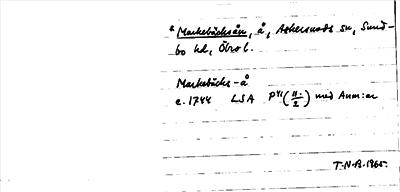 * Markebäcksån, å, Askersunds sn, Sund-
bo hd, Öbro l.
Markebäcks-å
c. 1744 LSA P41 (11/2) med Anm:ar
T.N.B. 1965.